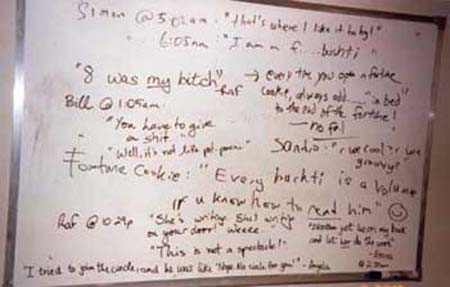 Simon @ 5:02am: "that's where I like it baby!"
6:05am: "I am a f.....bushti"
"8 was my bitch" - Raf
→ every time you open a fortune
cookie, always add ...... "in bed"
to the end of the fortune!
Bill @ 1:05am:
"You have to give
a shit."
"Well, it's not like
Sandro: "r we cool? r we
groovy?"
Fortune Cookie: "Every bachti is a volume
if u know how to read him" ☺
Raf @ 10:29p
"She's writing shit
on your door! weeee...."
"This is not a spectacle!"
just lie on my back
and let her do the work"
"I tried to join the circle, and he was like 'Nope. No circle for you!'" - Angela